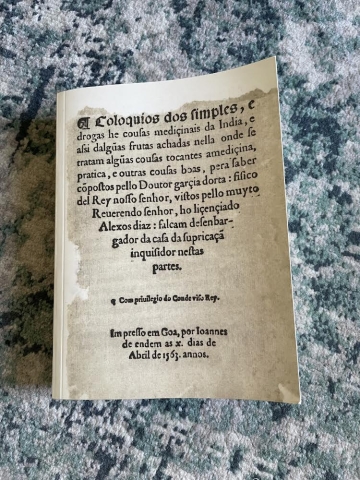 ¶ Coloquios dos simples, e
drogas he cousas mediçinais da India, e
assi dalgũas frutas achadas nella onde se
tratam algũas cousas tocantes amediçina,
pratica, e outras cousas boas, pera saber
cõpostos pello Doutor garçia dorta : fisico
del Rey nosso senhor, vistos pello muyto
Reuerendo senhor, ho liçençiado
Alexos diaz : falcam desenbar-
gador da casa da supricaçã
inquisidor nestas
partes.
¶ Com priuilegio do Conde viso Rey.
Impresso em Goa, por Ioannes
de endem as x. dias de
Abril de 1563. annos.